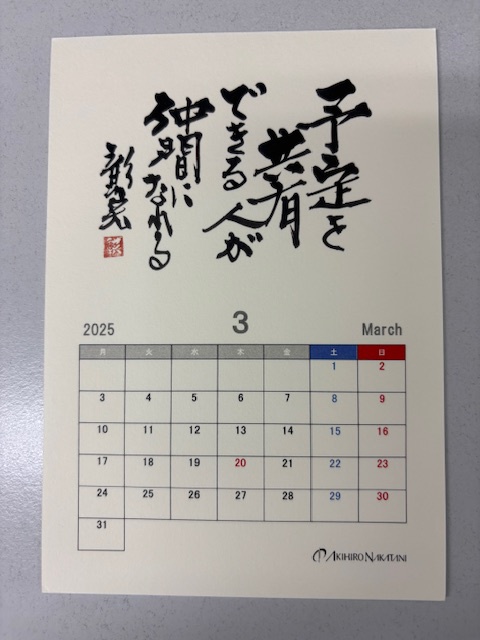 予定を
共有
できる人が
仲間に
なれる
彰宏
2025 3 March
月 火 水 木 金 土 日
1 2
3 4 5 6 7 8 9
10 11 12 13 14 15 16
17 18 19 20 21 22 23
24 25 26 27 28 29 30
31
AKIHIRO NAKATANI